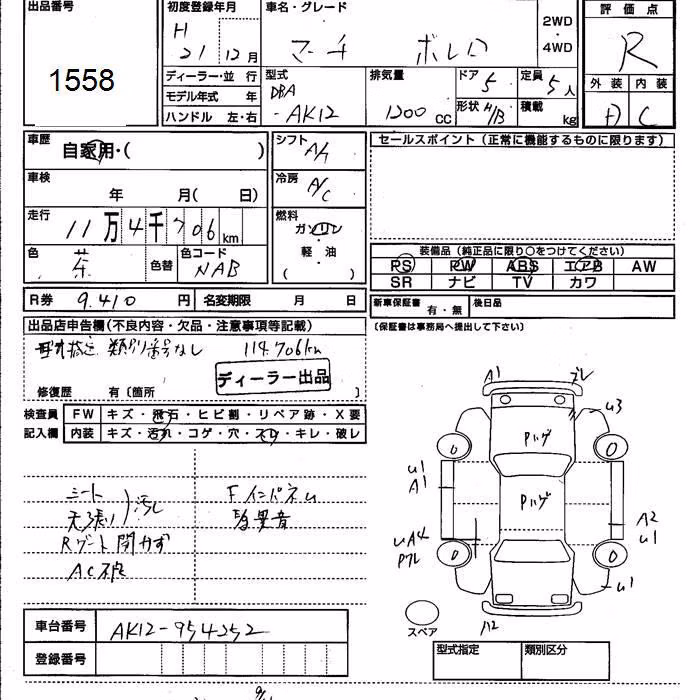 出品番号
1558
初度登録年月
H
21 12月
車名・グレード
マーチ ボレロ
2WD
・
4WD
評価点
R
外装 内装
D C
ディーラー・並行
モデル年式 年
ハンドル 左・右
型式
DBA
-AK12
排気量
1200 cc
ドア 5
形状 H/B
定員 5人
積載 kg
車歴
自家用・( )
車検
年 月( 日)
走行
11万4千706km
色 茶 色替
色コード
NAB
シフト
A/T
冷房
A/C
燃料
ガソリン
・
軽・油
( )
セールスポイント (正常に機能するものに限ります)
装備品 (純正品に限り○をつけてください)
PS PW ABS エアB AW
SR ナビ TV カワ
R券 9,410 円 名変期限 月 日
新車保証書 有・無 後日品
(保証書は事務局へ提出して下さい)
出品店申告欄(不良内容・欠品・注意事項等記載)
型式指定 類別番号なし 114,706km
ディーラー出品
修復歴 有〔箇所 〕
検査員 FW キズ・飛石・ヒビ割・リペア跡・X要
記入欄 内装 キズ・汚れ・コゲ・穴・スレ・キレ・破レ
シート
天張り 汚れ
Rゲート開かず
AC不良
Fインパネム
異音
A1
U3
Pハゲ
Pハゲ
U1
A1
A2
U1
UA4
U1
0
0
0
0
スペア
車台番号 AK12-954252
登録番号
型式指定 類別区分